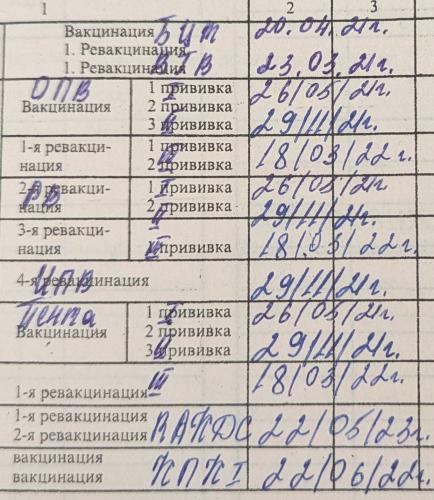 1 2 3
Вакцинация БЦЖ 20.04.21г.
1. Ревакцинация
1. Ревакцинация ВГВ 23.03.21г.
ОПВ 1 прививка I 26/05/21г.
Вакцинация 2 прививка
3 прививка II 29/11/21г.
1-я ревакци- 1 прививка
нация 2 прививка III 18/03/22г.
2-я ревакци- 1 прививка I 26/05/21г.
нация РВ 2 прививка
II 29/11/21г.
3-я ревакци-
нация 1 прививка III 18/03/22г.
4-я ревакцинация ИПВ 29/11/21г.
Пента 1 прививка I 26/05/21г.
Вакцинация 2 прививка
3 прививка II 29/11/21г.
III 18/03/22г.
1-я ревакцинация
1-я ревакцинация
2-я ревакцинация КАКДС 22/05/23г.
вакцинация
вакцинация КПК I 22/06/22г.